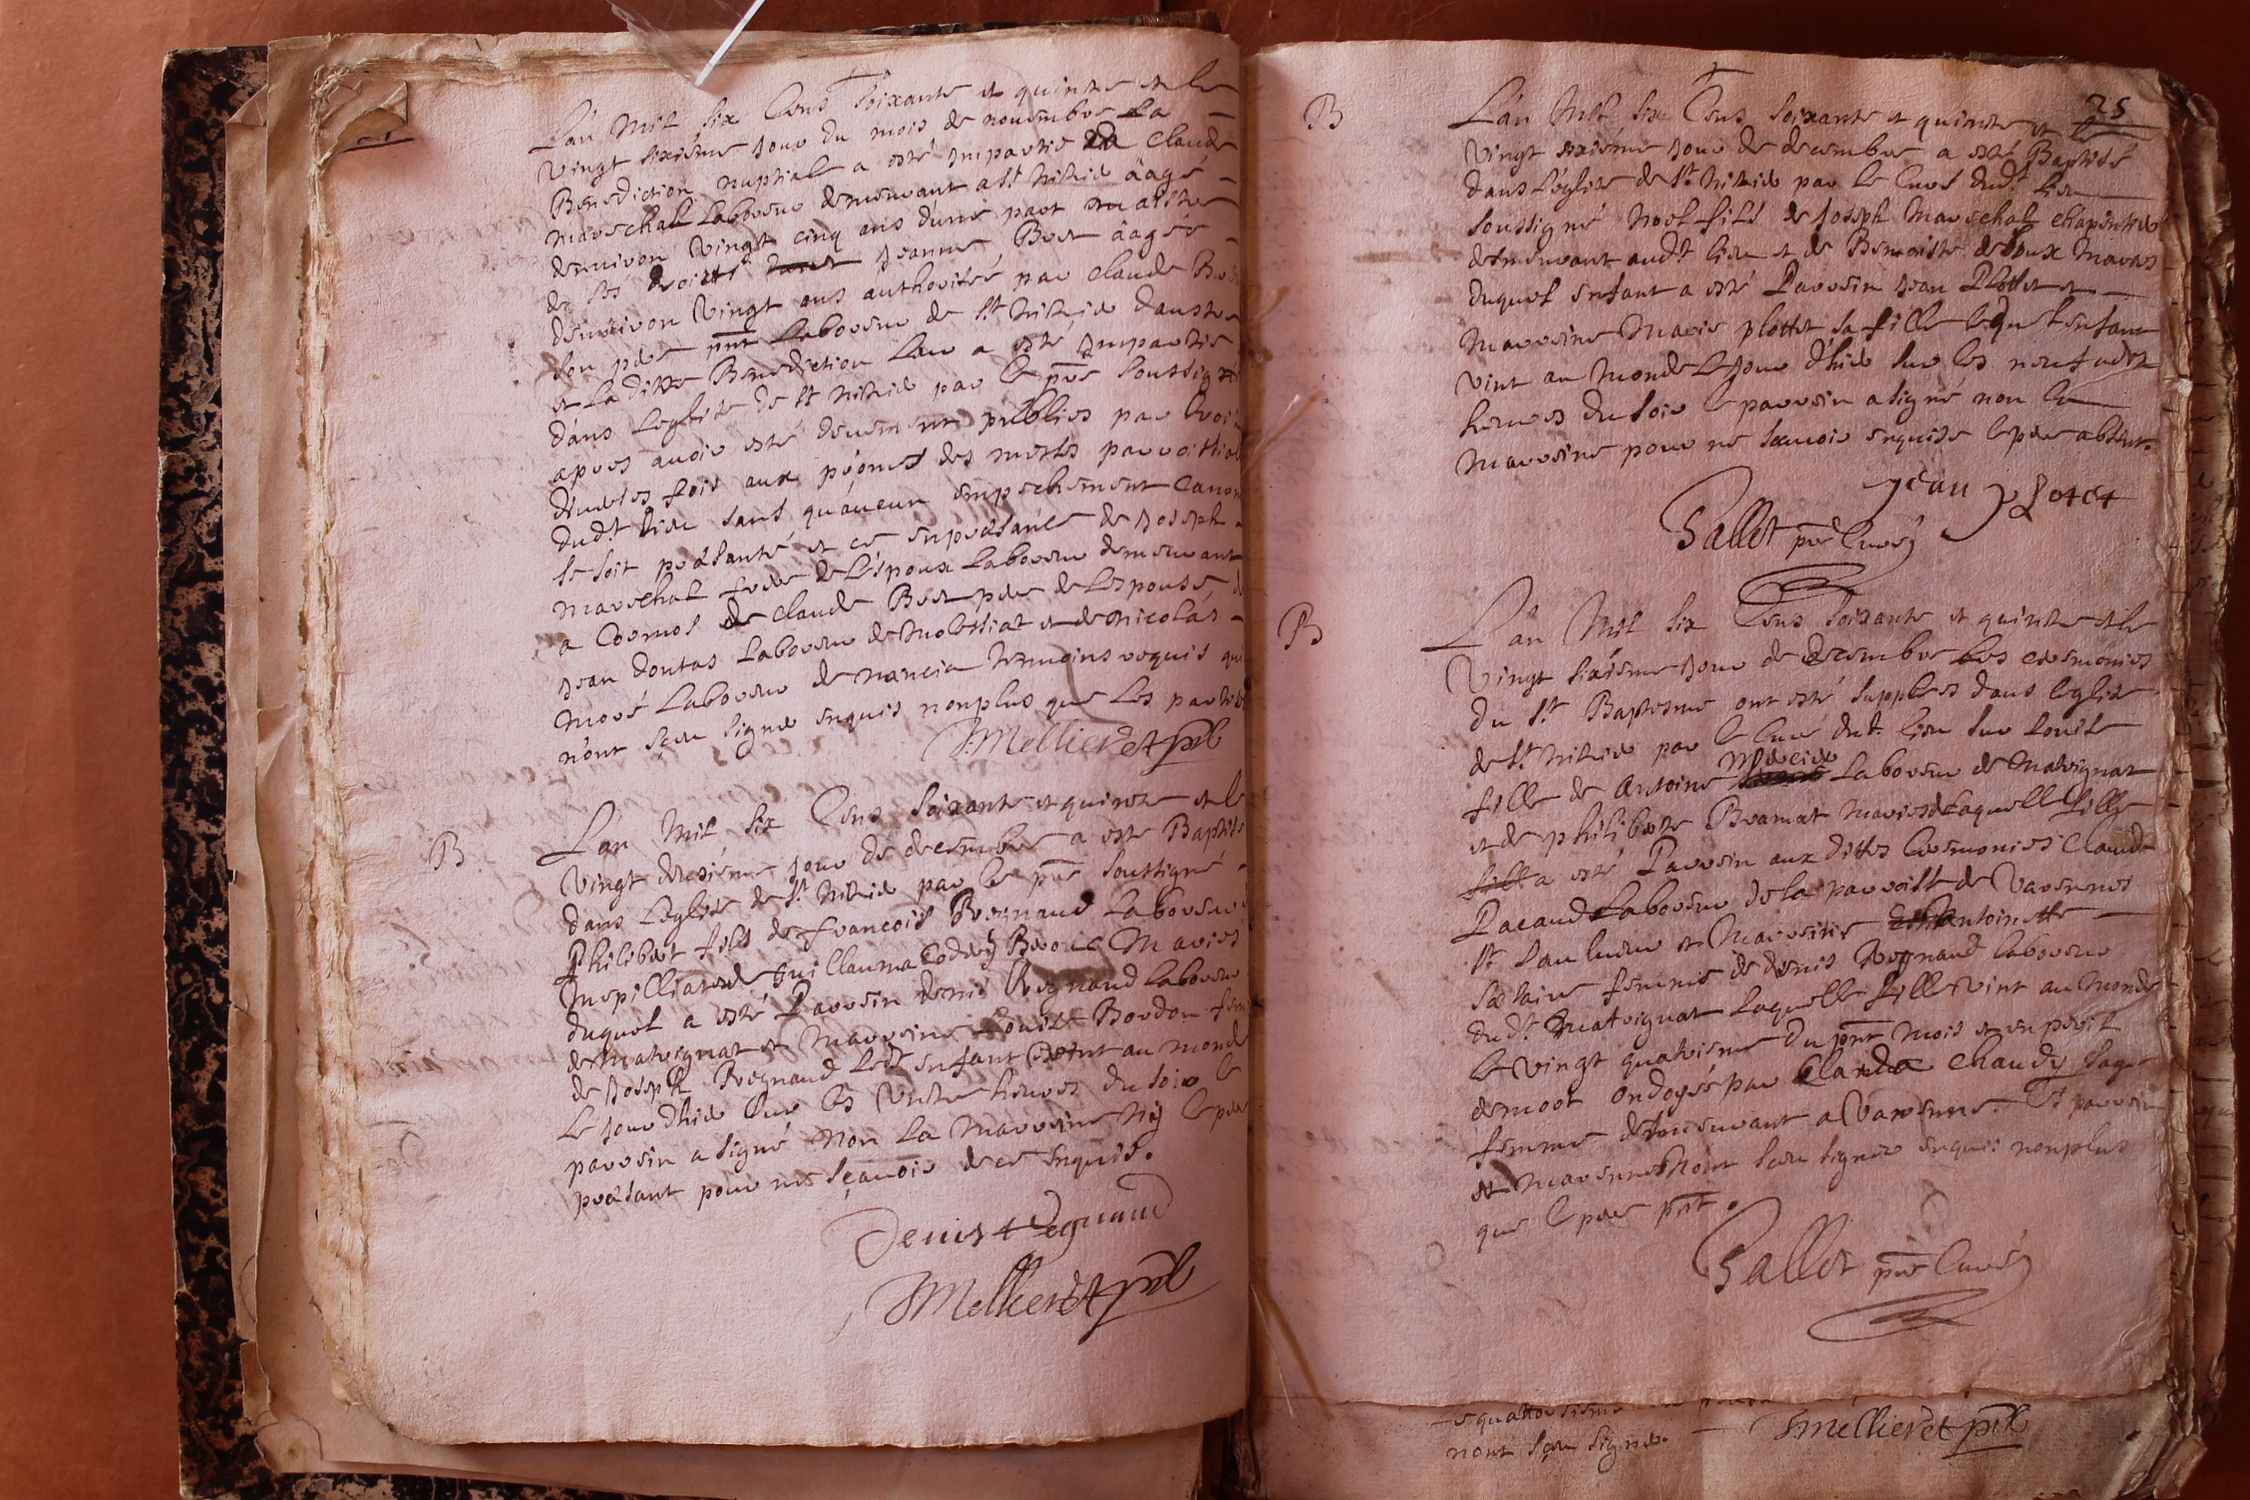 L'an Mil six Cens soixante et quinze et le
vingt sixiéme jour du mois de novembre La
Benediction nuptiale a esté impartie a Claude
Mareschal Laboureur demeurant a St Nithier aagé
denuiron vingt cinq ans d'une part maistre
de ses droitts Jeanne Bert aagée
denuiron vingt ans authorisée par Claude Bert
son pere pnt Laboureur de St Nithier d'austre
et La ditte Benediction Leur a esté impartie
dans Leglise de St Nithier par le pre soussigné
apres auoir esté deuem publies par trois
diuerses fois aux prônes des messes parroissial
dudt lieu sans qu'aucun empeschement Canon
se soit præsanté et ce en præsance de Joseph
Mareschal frere de L'époux Laboureur demeurant
a Cormos de Claude Bert pere de Lespouse de
Jean dontas Laboureur de Molessiat et de Nicolas
Moré Laboureur de nancia tesmoins requis qui
n'ont sceu signer enquis nonplus que les parties
JMellieret pbr
B
L'an Mil six Cens soixante et quinze et le
vingt deuxiéme jour de decembre a esté Baptisé
dans L'eglise de St Nithier par le pre soussigné
Philibert fils de françois Regnaud Laboureur
Guillauma Maries
duquel a esté Parrein denis Regnaud Laboureur
de Malvignat et Marreine Louise Bordon fem
de Joseph Regnaud Ledt enfant vint au monde
Le jour d'hier sur les unze heures du soir le
parrein a signé non La Marreine Nij le pere
præsant pour ne sçauoir de ce enquis.
Denis Regnaud
JMellieret pbr
25
B
L'an Mil six Cens soixante et quinze et le
vingt sixiéme jour de decembre a esté Baptisé
dans L'eglise de St Nithier par le Curé dudt lieu
soussigné Noel fils de Joseph Mareschal chapentier
demeurant audt lieu et de Benoiste deloux Maries
duquel enfant a esté Parrein Jean Plottet et
Marreine Marie plottet sa fille lequel enfant
vint au monde Le jour d'hier sur les neuf
heures du soir le parrein a signé non la
Marreine pour ne sçauoir enquise le pere absent.
jean plotet
Gallet pre Curé
B
L'an Mil six Cens soixante et quinze et le
vingt sixiéme jour de decembre les ceremonies
du St Baptesme ont esté supplees dans leglise
de St Nithier par le Curé dudt lieu sur Louise
fille de Antoine Mercier Laboureur de Malvignat
et de philiberte Bramat Maries de laquelle fille
a esté Parrein aux dittes Ceremonies Claude
Pacaud Laboureur de la parroisse de Varennes
St Sauueur et Marreine Antoinette
femme de denis Regnaud Laboureur
dudt Malvignat Laquelle fille vint au Monde
Le vingt quatriesme du pnt Mois et en peril
de mort ondoyée par Claudy sage
femme demeurant a Varenne. Et parrein
et Marenne n'ont sceu signer enquis nonplus
que le pere pnt.
Gallet pre Curé
n'ont sceu signer.
JMellieret pbr